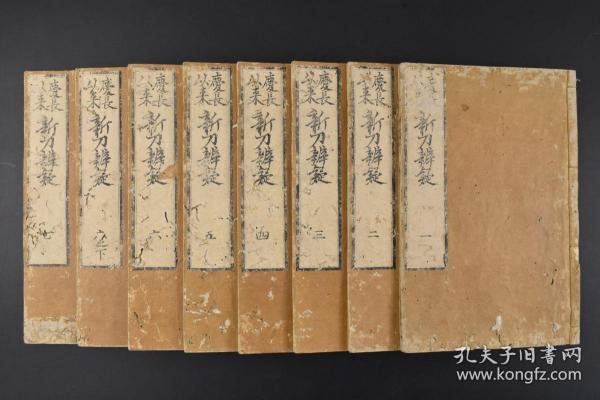 慶長
以来
新刀辨疑
一
慶長
以来
新刀辨疑
二
慶長
以来
新刀辨疑
三
慶長
以来
新刀辨疑
四
慶長
以来
新刀辨疑
五
慶長
以来
新刀辨疑
六
慶長
以来
新刀辨疑
六之下
慶長
以来
新刀辨疑
七
孔夫子旧书网
www.kongfz.com